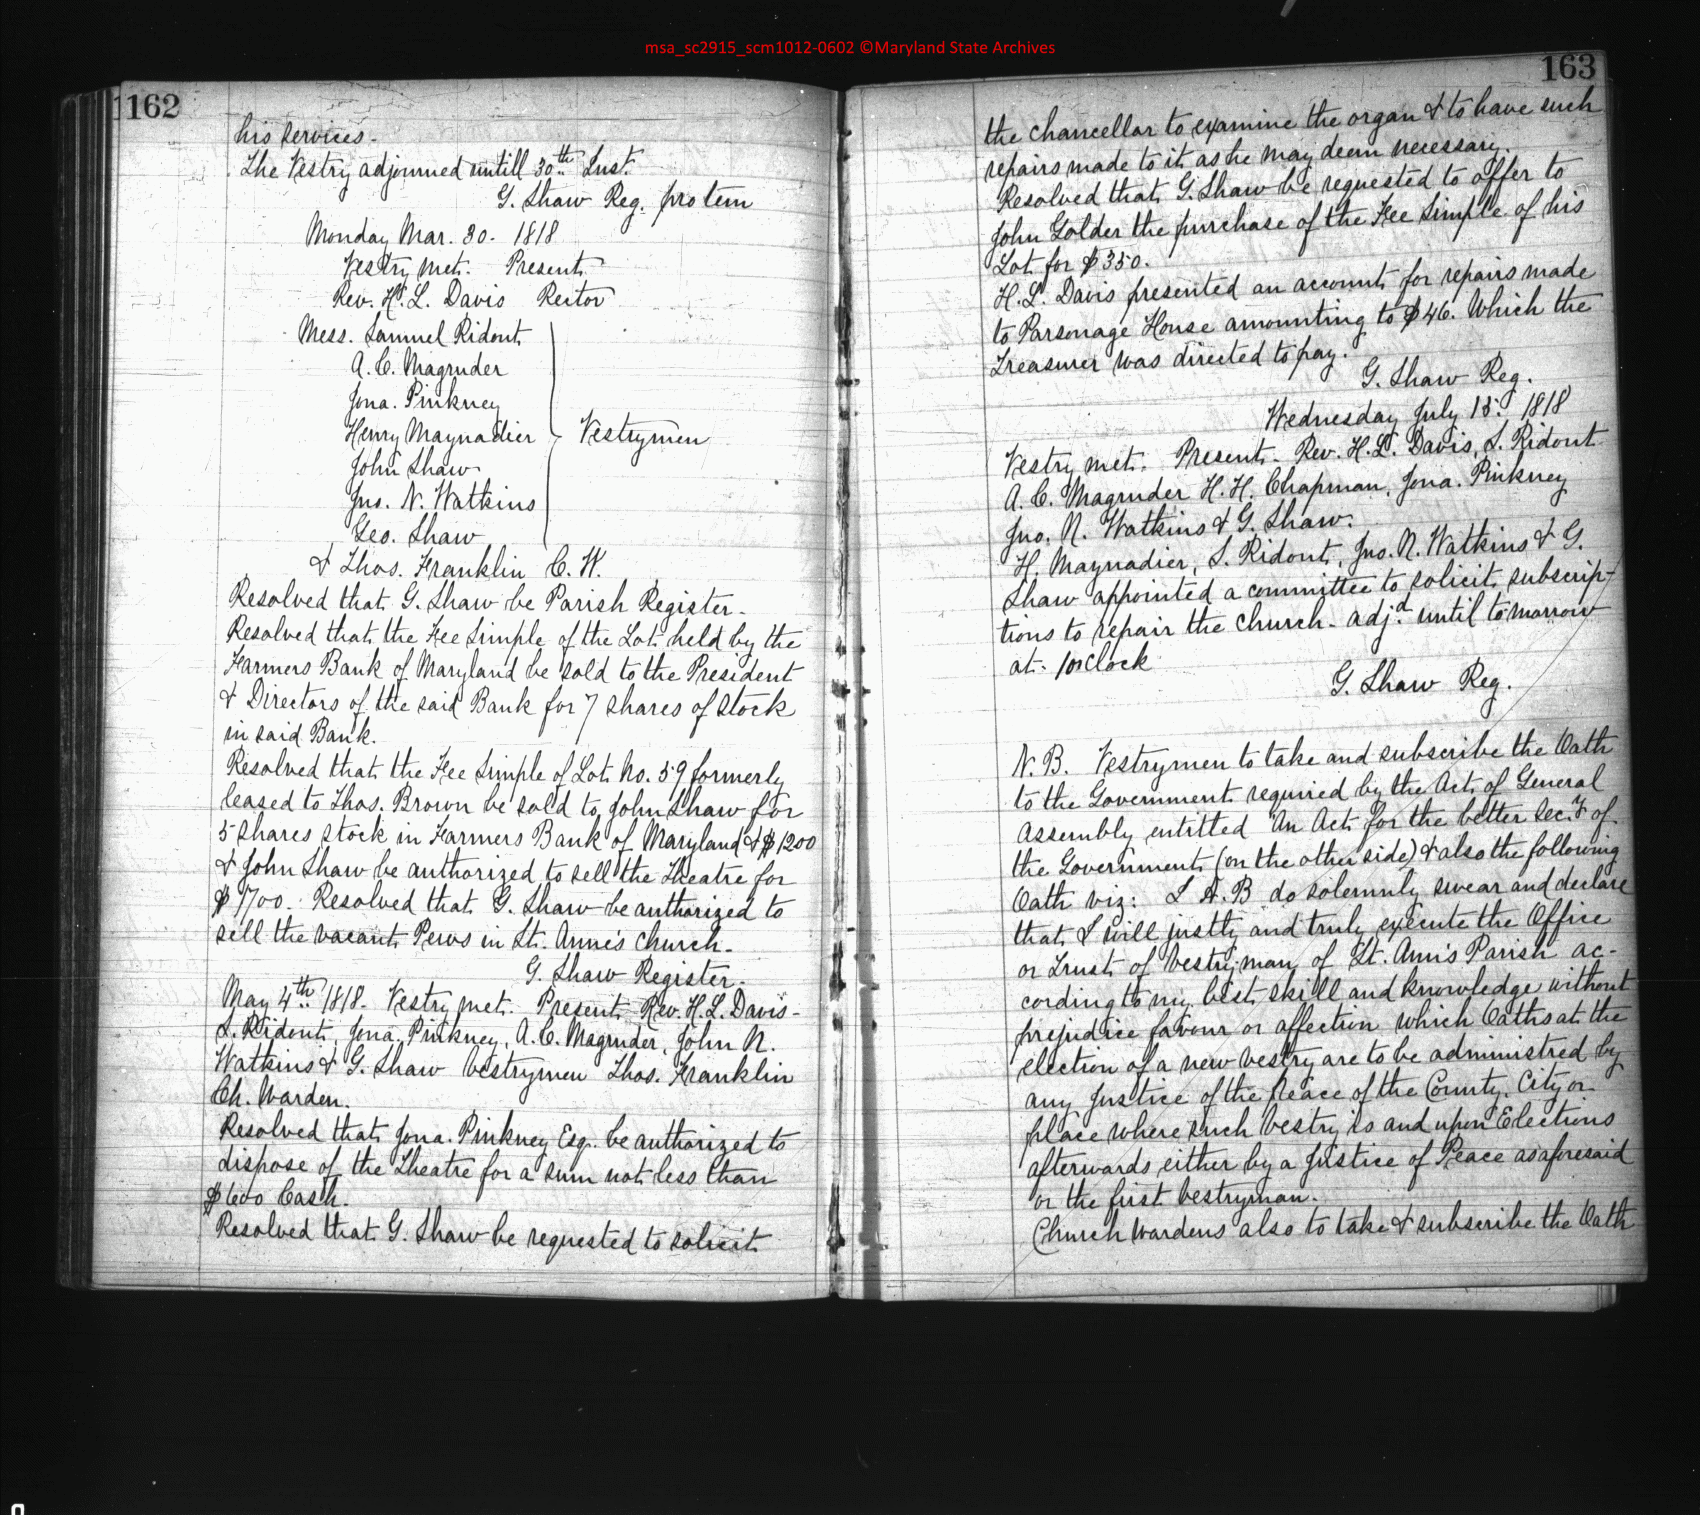 msa_sc2915_scm1012-0602 ©Maryland State Archives
162
his services.
The Vestry adjourned untill 30th Inst.
G. Shaw Reg. pro tem
Monday Mar. 30. 1818
Vestry met. Present
Rev. H. L. Davis Rector
Mess. Samuel Ridout
A. C. Magruder
Jona. Pinkney
Henry Maynadier Vestrymen
John Shaw
Jno. N. Watkins
Geo. Shaw
& Thos. Franklin C. W.
Resolved that G. Shaw be Parish Register.
Resolved that the Fee Simple of the Lot held by the
Farmers Bank of Maryland be sold to the President
& Directors of the said Bank for 7 shares of stock
in said Bank.
Resolved that the Fee Simple of Lot No. 59 formerly
leased to Thos. Brown be sold to John Shaw for
5 shares stock in Farmers Bank of Maryland & $1200
& John Shaw be authorized to sell the Theatre for
$700. Resolved that G. Shaw be authorized to
sell the vacant Pews in St. Anne's Church.
G. Shaw Register.
May 4th 1818. Vestry met. Present Rev. H. L. Davis-
S. Ridout, Jona. Pinkney, A. C. Magruder, John N.
Watkins & G. Shaw Vestrymen Thos. Franklin
Ch. Warden.
Resolved that Jona. Pinkney Esq. be authorized to
dispose of the Theatre for a sum not less than
$600 Cash.
Resolved that G. Shaw be requested to solicit
163
the chancellor to examine the organ & to have such
repairs made to it as he may deem necessary.
Resolved that G. Shaw be requested to offer to
John Golder the purchase of the Fee Simple of his
Lot for $350.
H. L. Davis presented an account for repairs made
to Parsonage House amounting to $46. Which the
Treasurer was directed to pay.
G. Shaw Reg.
Wednesday July 15. 1818
Vestry met. Present - Rev. H. L. Davis, S. Ridout
A. C. Magruder H. H. Chapman, Jona. Pinkney
Jno. N. Watkins & G. Shaw.
H. Maynadier, S. Ridout, Jno. N. Watkins & G.
Shaw appointed a committee to solicit subscrip-
tions to repair the church - adjd. until tomorrow
at oclock
G. Shaw Reg.
N. B. Vestrymen to take and subscribe the Oath
to the Government required by the Act of General
Assembly entitled "An Act for the better Secy. of
the Government (on the other side) & also the following
Oath viz: I A. B do solemnly swear and declare
that I will justly and truly execute the Office
or Trust of Vestryman of St. Ann's Parish ac-
cording to my best skill and knowledge without
prejudice favour or affection which Oaths at the
election of a new Vestry are to be administred by
any Justice of the Peace of the County, City or
place where such Vestry is and upon Elections
afterwards either by a Justice of Peace as aforesaid
or the first Vestryman.
Church Wardens also to take & subscribe the Oath